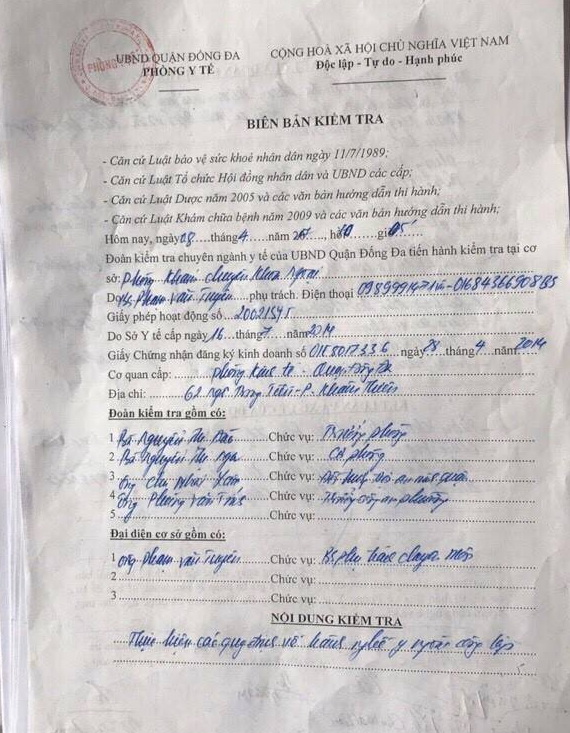 UBND QUẬN ĐỐNG ĐA
PHÒNG Y TẾ
CỘNG HOÀ XÃ HỘI CHỦ NGHĨA VIỆT NAM
Độc lập - Tự do - Hạnh phúc
BIÊN BẢN KIỂM TRA
- Căn cứ Luật bảo vệ sức khoẻ nhân dân ngày 11/7/1989;
- Căn cứ Luật Tổ chức Hội đồng nhân dân và UBND các cấp;
- Căn cứ Luật Dược năm 2005 và các văn bản hướng dẫn thi hành;
- Căn cứ Luật Khám chữa bệnh năm 2009 và các văn bản hướng dẫn thi hành;
Hôm nay, ngày 28 tháng 4 năm
Đoàn kiểm tra chuyên ngành y tế của UBND Quận Đống Đa tiến hành kiểm tra tại cơ
sở: Phòng khám chuyên khoa ngoại
Do Bs Phạm Văn Tuyên phụ trách. Điện thoại
Giấy phép hoạt động số
Do Sở Y tế cấp ngày 16 tháng 7 năm 2014
Giấy Chứng nhận đăng ký kinh doanh số ngày 28 tháng 4 năm 2014
Cơ quan cấp: phòng kinh tế - Quận Đống Đa
Địa chỉ: 62 ngõ P. Khâm Thiên
Đoàn kiểm tra gồm có:
1 Bà Nguyễn Thị Chức vụ: Trưởng phòng
2 Bà Nguyễn Thị Nga Chức vụ: CB phòng
3 Ông Chu Chức vụ:
4 Ông Phùng Văn Chức vụ:
5 Chức vụ:
Đại diện cơ sở gồm có:
1 Ông Phạm Văn Tuyên Chức vụ: Bs phụ trách chuyên môn
2 Chức vụ:
3 Chức vụ:
NỘI DUNG KIỂM TRA
Thực hiện các quy định về hành nghề y ngoài công lập